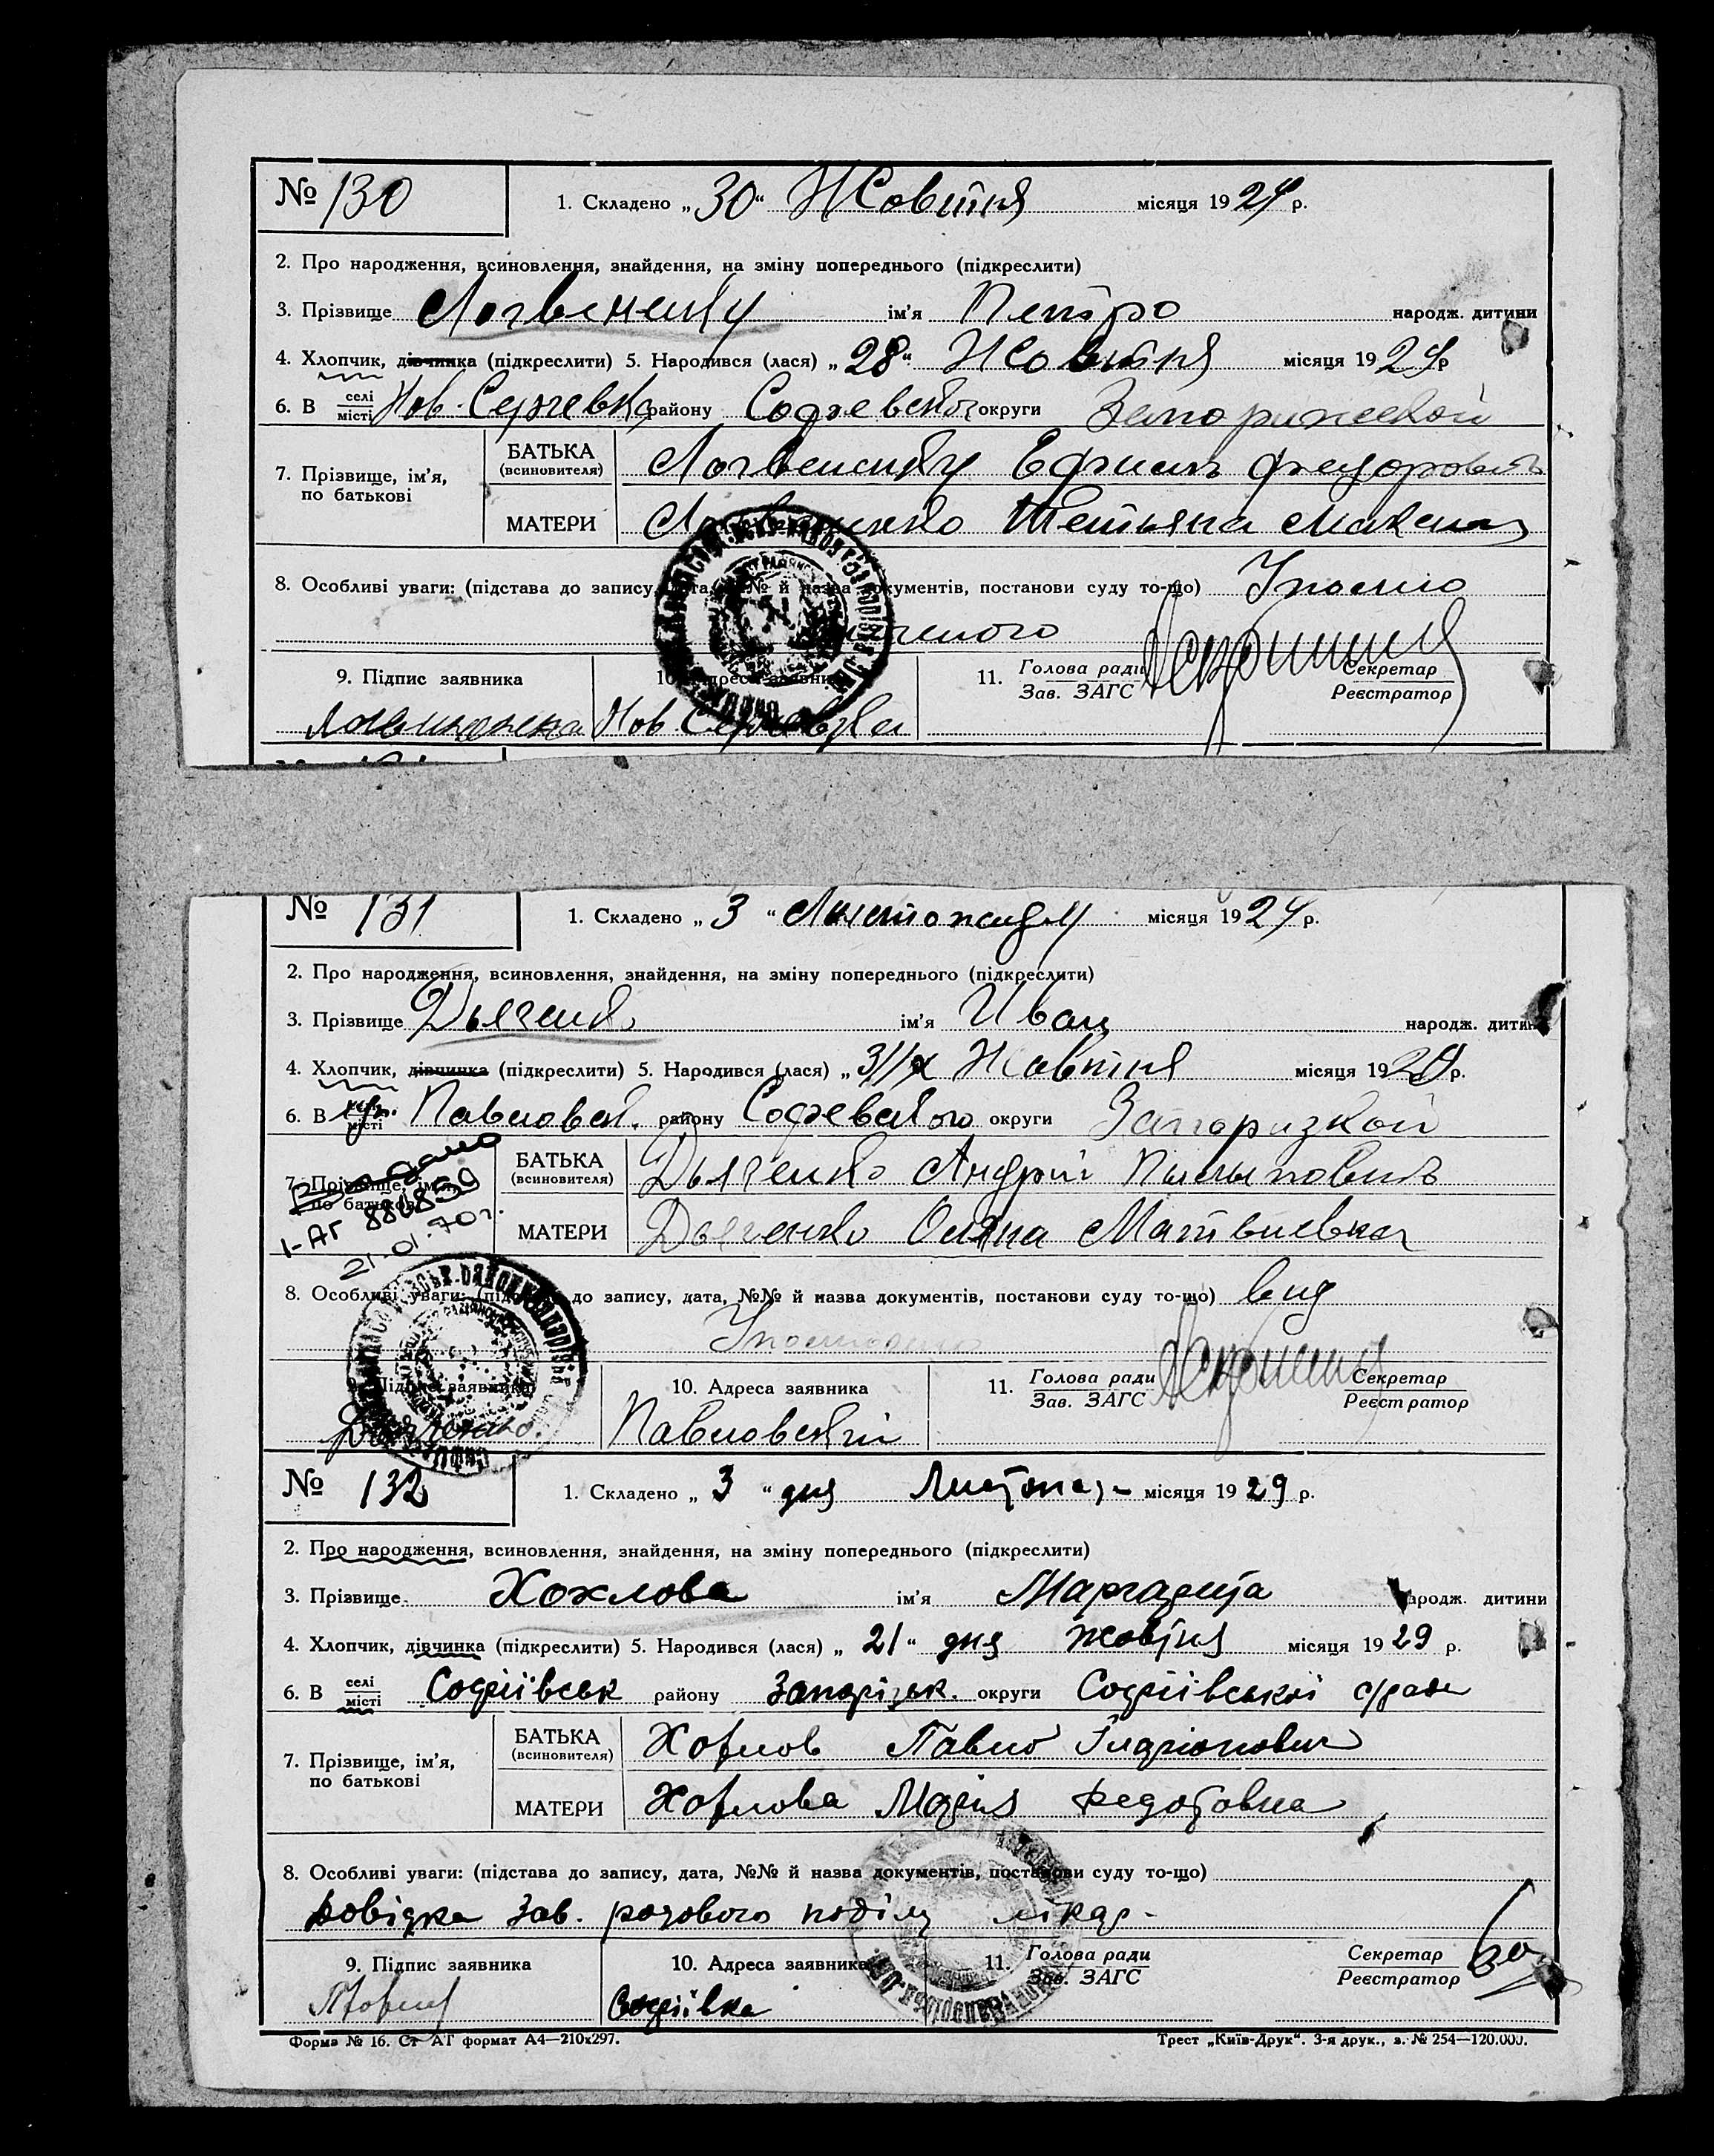 № 130
1. Складено „30“ Жовтня місяця 1929 р.
2. Про народження, всиновлення, знайдення, на зміну попереднього (підкреслити)
3. Прізвище ім'я Петро народж. дитини
4. Хлопчик, дівчинка (підкреслити) 5. Народився (лася) „28“ Жовтня місяця 1929 р
6. В селі місті Нов. Сергевка району Софевского округи
7. Прізвище, ім'я, по батькові
БАТЬКА (всиновителя) Федорович
МАТЕРИ Тетьяна
8. Особливі уваги: (підстава до запису, дата, №№ й назва документів, постанови суду то-що)
9. Підпис заявника 10. Адреса заявника 11. Голова ради Зав. ЗАГС Секретар Реєстратор
Нов. Сергевка
№ 131
1. Складено „3“ місяця 1929 р.
2. Про народження, всиновлення, знайдення, на зміну попереднього (підкреслити)
3. Прізвище Дьяченко ім'я Иван народж. дитини
4. Хлопчик, дівчинка (підкреслити) 5. Народився (лася) „31/X Жовтня місяця 1929 р.
6. В селі місті Павловск. району Софевского округи Запоризкой
7. Прізвище, ім'я, по батькові
БАТЬКА (всиновителя) Дьяченко Андрій Пилыповичъ
МАТЕРИ Дьяченко Матвиевна
I-АГ 886859
21-01-70 г.
8. Особливі уваги: (підстава до запису, дата, №№ й назва документів, постанови суду то-що) вид
9. Підпис заявника 10. Адреса заявника 11. Голова ради Зав. ЗАГС Секретар Реєстратор
Дьяченко. Павловский
№ 132
1. Складено „3“ дня місяця 1929 р.
2. Про народження, всиновлення, знайдення, на зміну попереднього (підкреслити)
3. Прізвище Хохлова ім'я Маргарита народж. дитини
4. Хлопчик, дівчинка (підкреслити) 5. Народився (лася) „21“ дня жовтня місяця 1929 р.
6. В селі місті Софіївськ району Запорізьк. округи Софіївської
7. Прізвище, ім'я, по батькові
БАТЬКА (всиновителя) Хохлов Павло
МАТЕРИ Хохлова Марія Федотовна
8. Особливі уваги: (підстава до запису, дата, №№ й назва документів, постанови суду то-що)
Довідка Зав. родового поділу лікар-
9. Підпис заявника 10. Адреса заявника 11. Голова ради Зав. ЗАГС Секретар Реєстратор
Софіївка
Форма № 16. Ст АТ формат А4—210x297.
Трест „Київ-Друк“. 3-я друк., з. № 254—120.000.